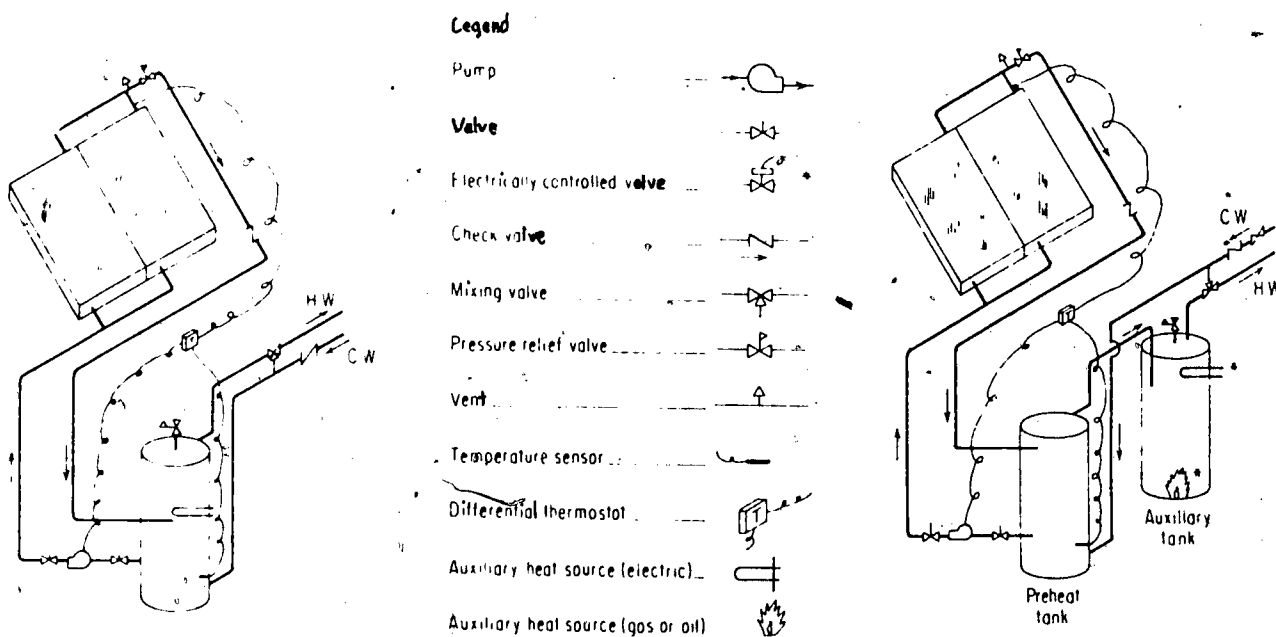 Legend
Pump
Valve
Electrically controlled valve
Check valve
Mixing valve
Pressure relief valve
Vent
Temperature sensor
Differential thermostat
T
Auxiliary heat source (electric)
Auxiliary heat source (gas or oil)
HW
CW
T
CW
HW
T
Auxiliary
tank
Preheat
tank